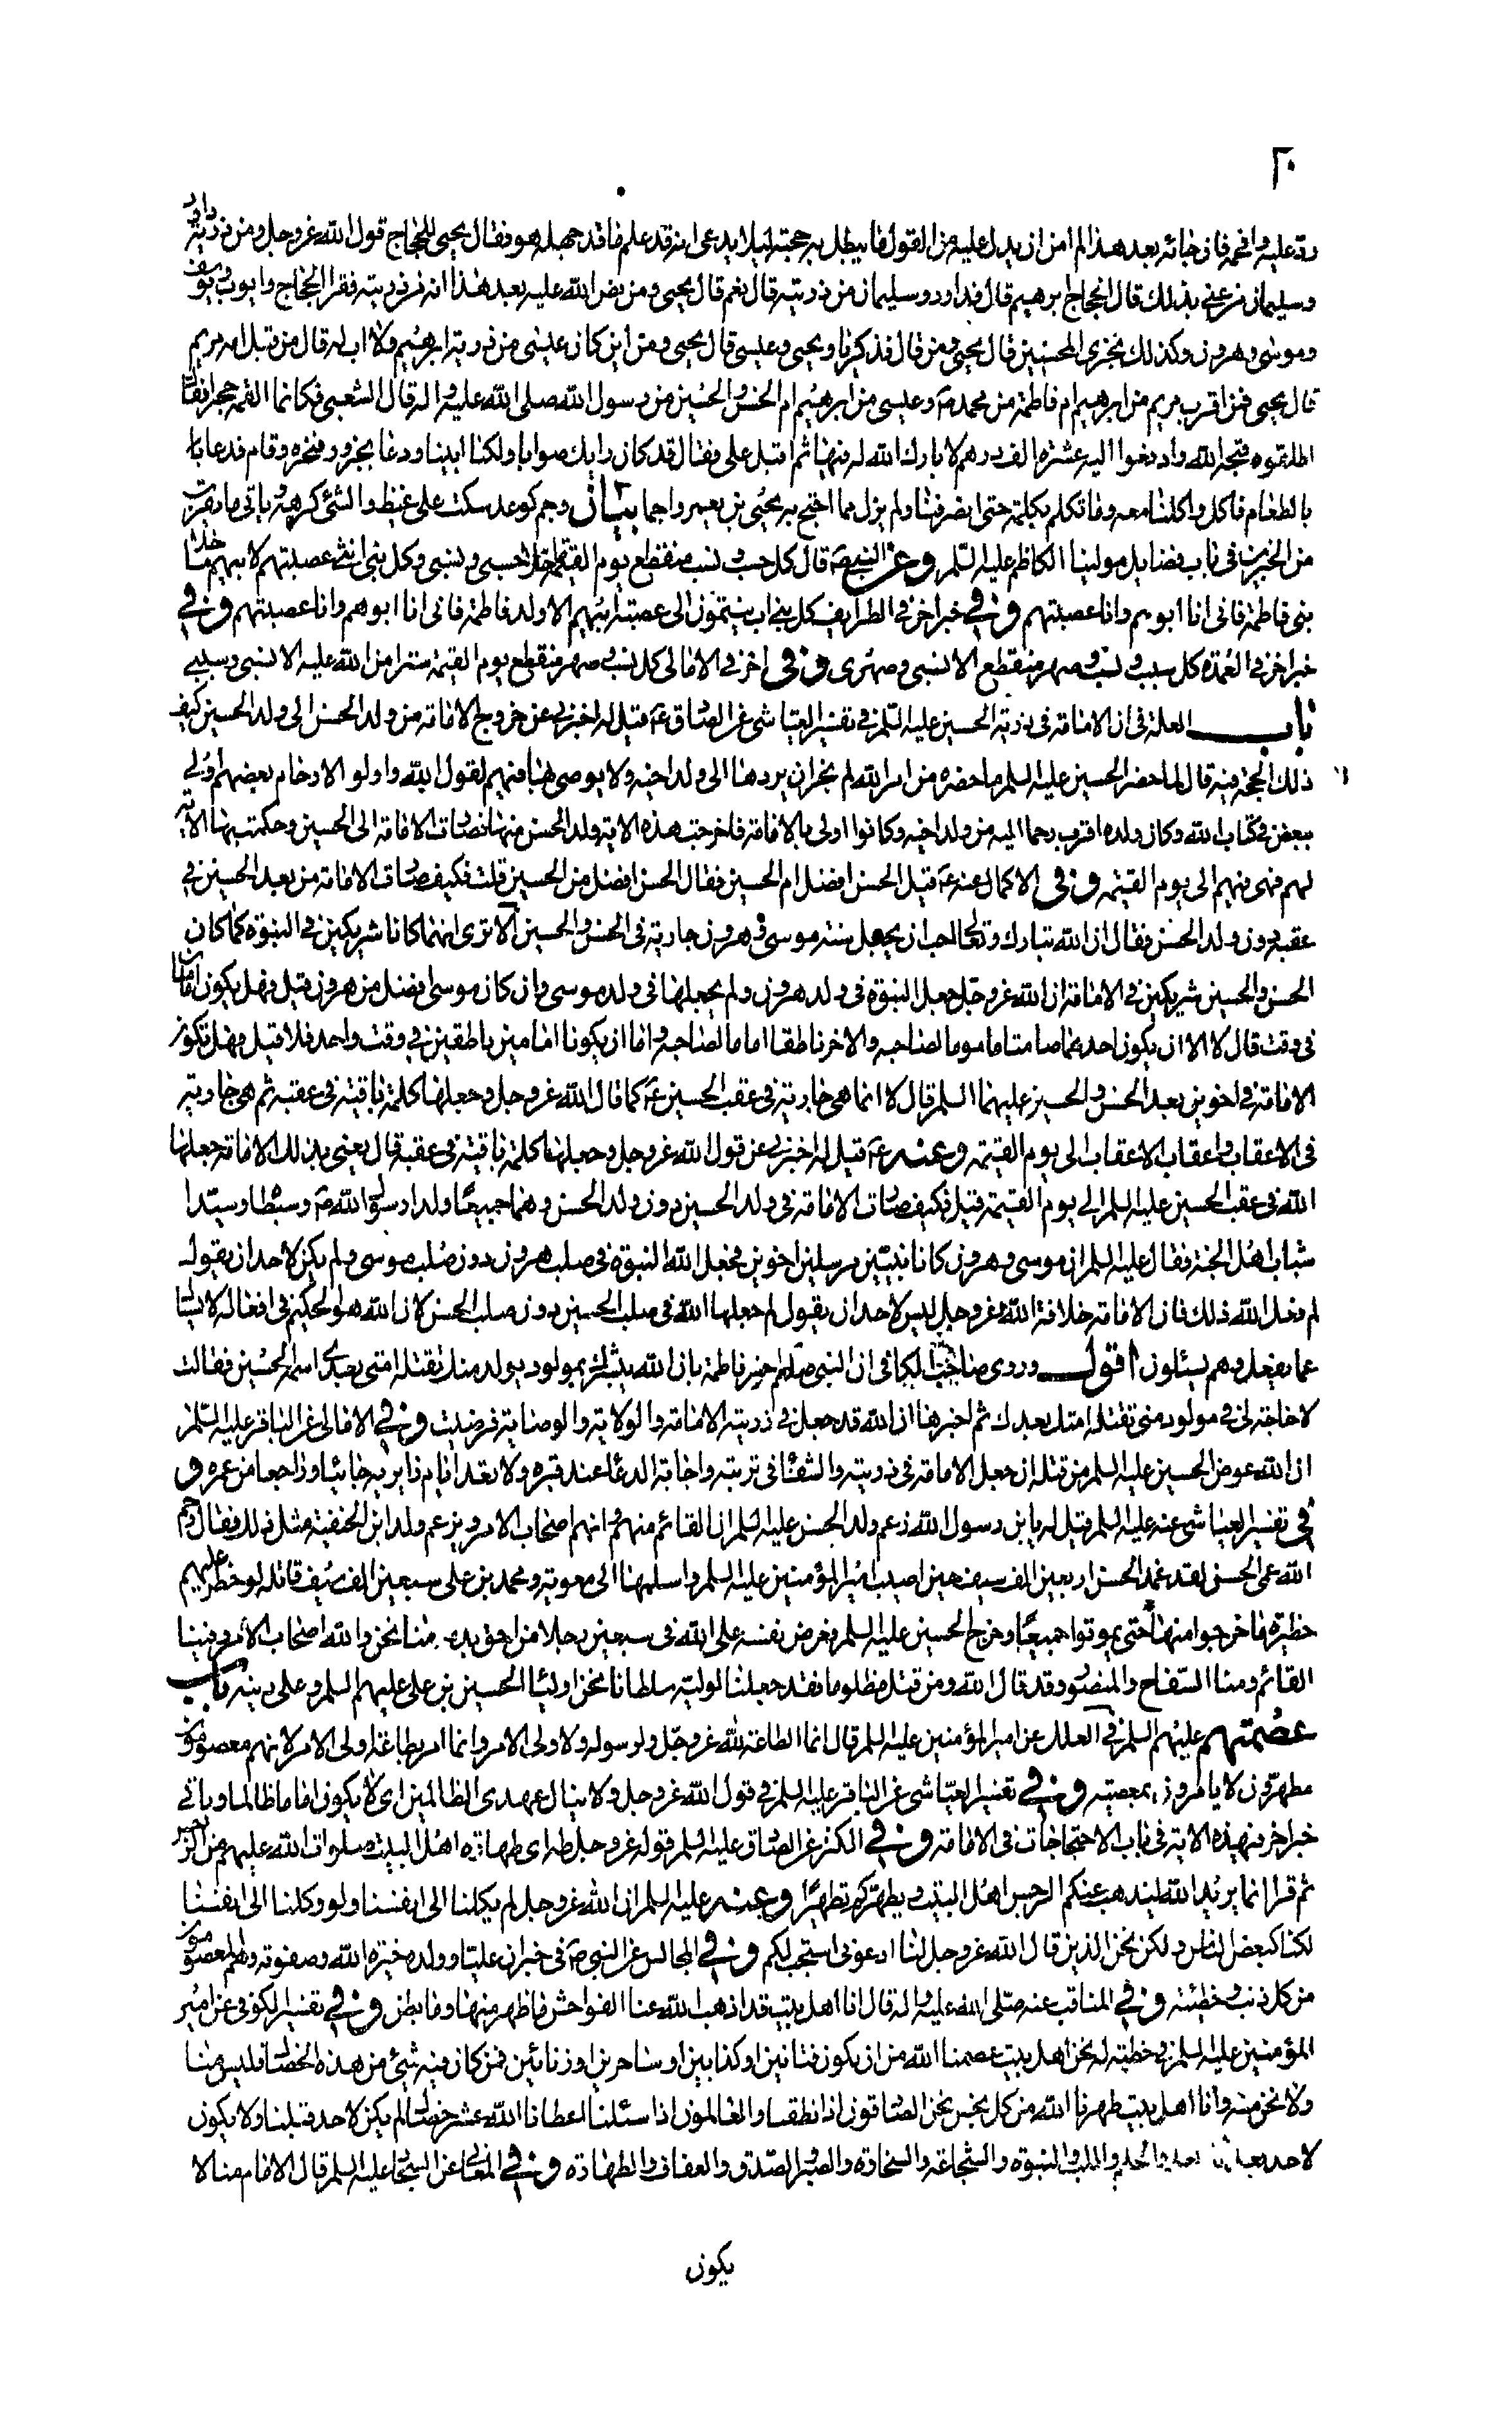 ٢٠
رد عليه وافحمه فانى خائف بعد هذا لم امن ان يدل عليه من القول فا يبطل به حجته لئلا يدعى انه قد علم ما قد جهله هو فقال يحيى للحجاج قول الله عز وجل ومن ذريته داود
وسليمان من عنى بذلك قال الحجاج ابرهيم قال فداود وسليمان من ذريته قال نعم قال يحيى ومن نص الله عليه بعد هذا انه من ذريته فقرا الحجاج وايوب ويوسف
وموسى وهرون وكذلك نجزى المحسنين قال يحيى ومن قال فذكرنا ويحيى وعيسى قال يحيى ومن اين كان عيسى من ذرية ابرهيم ولا اب له قال من قبل امه مريم
قال يحيى فمن اقرب مريم من ابرهيم ام فاطمة من محمد ص وعيسى من ابرهيم ام الحسن والحسين من رسول الله صلى الله عليه واله قال الشعبى فكانما القمه حجرا فقال
اطلقوه قبحه الله وادفعوا اليه عشرة الف درهم لا بارك الله له فيها ثم اقبل على فقال قد كان رايك صوابا ولكنا ابينا ودعا بجزور فنحره وقام فدعا با
بالطعام فاكل واكلنا معه وما تكلم بكلمة حتى انصرفنا ولم يزل مما احتج به يحيى بن يعمر واجما بيان وجم كوعد سكت على غيظ والشئ كرهه وياتى ما يقرب
من الخبرين فى باب فضايل مولينا الكاظم عليه السلم وعن النبى ص قال كل حسب ونسب منقطع يوم القيمة ما خلا حسبى ونسبى وكل بنى انثى عصبتهم لابيهم ما خلا
بنى فاطمة فانى انا ابوهم وانا عصبتهم وفى خبر اخر فى الطرايف كل بنى اب ينتمون الى عصبة ابيهم الا ولد فاطمة فانى انا ابوهم وانا عصبتهم وفى
خبر اخر فى العمدة كل سبب ونسب وصهر منقطع الا نسبى وصهرى وفى اخر فى الامالى كل نسب وصهر منقطع يوم القيمة سترا من الله عليه الا نسبى وسببى
باب العلة فى ان الامامة فى ذرية الحسين عليه السلم فى تفسير العياشى عن الصادق ع قيل له اخبرنى عن خروج الامامة من ولد الحسن الى ولد الحسين كيف
ذلك الحجة فيه قال لما حضر الحسين عليه السلم ما حضره من امر الله لم يجز ان يردها الى ولد اخيه ولا يوصى بها فيهم لقول الله واولو الارحام بعضهم اولى
ببعض فى كتاب الله وكان ولده اقرب رحما اليه من ولد اخيه وكانوا اولى بالامامة فاخرجت هذه الاية ولد الحسن منها فصارت الامامة الى الحسين وحكمت بها الاية
لهم فهى فيهم الى يوم القيمة وفى الاكمال عنه ع قيل الحسن افضل ام الحسين فقال الحسن افضل من الحسين قلت فكيف صارت الامامة من بعد الحسين فى
عقبه دون ولد الحسن فقال ان الله تبارك وتعالى احب ان يجعل سنة موسى وهرون جارية فى الحسن والحسين الا ترى انهما كانا شريكين فى النبوة كما كان
الحسن والحسين شريكين فى الامامة ان الله عز وجل جعل النبوة فى ولد هرون ولم يجعلها فى ولد موسى وان كان موسى افضل من هرون قيل فهل يكون امامان
فى وقت قال لا الا ان يكون احدهما صامتا ماموما لصاحبه والاخر ناطقا اماما لصاحبه واما ان يكونا امامين ناطقين فى وقت واحد فلا قيل فهل تكون
الامامة فى اخوين بعد الحسن والحسين عليهما السلم قال لا انما هى جارية فى عقب الحسين ع كما قال الله عز وجل وجعلها كلمة باقية فى عقبه ثم هى جارية
فى الاعقاب واعقاب الاعقاب الى يوم القيمة وعنه ع قيل له اخبرنى عن قول الله عز وجل وجعلها كلمة باقية فى عقبه قال يعنى بذلك الامامة جعلها
الله فى عقب الحسين عليه السلم الى يوم القيمة قيل فكيف صارت الامامة فى ولد الحسين دون ولد الحسن وهما جميعا ولدا رسول الله ص وسبطا وسيدا
شباب اهل الجنة فقال عليه السلم ان موسى وهرون كانا نبيين مرسلين اخوين فجعل الله النبوة فى صلب هرون دون صلب موسى ولم يكن لاحد ان يقول
لم فعل الله ذلك فان الامامة خلافة الله عز وجل ليس لاحد ان يقول لم جعلها الله فى صلب الحسين دون صلب الحسن لان الله هو الحكيم فى افعاله لا يسئل
عما يفعل وهم يسئلون اقول وروى صاحب الكافى ان النبى صلعم اخبر فاطمة بان الله يبشرك بمولود يولد منك تقتله امتى بعدى اسمه الحسين فقالت
لا حاجة لى فى مولود منى تقتله امتك بعدك ثم اخبرها ان الله قد جعل فى ذريته الامامة والولاية والوصاية فرضيت وفى الامالى عن الباقر عليه السلم
ان الله عوض الحسين عليه السلم من قتله ان جعل الامامة فى ذريته والشفا فى تربته واجابة الدعا عند قبره ولا تعد ايام زايريه جائيا وراجعا من عمره و
فى تفسير العياشى عنه عليه السلم قيل له يابن رسول الله زعم ولد الحسن عليه السلم ان القائم منهم وانهم اصحاب الامر ويزعم ولد ابن الحنفية مثل ذلك فقال رحم
الله عمى الحسن لقد غمد الحسن اربعين الف سيف حين اصيب امير المؤمنين عليه السلم واسلمها الى معوية ومحمد بن على سبعين الف سيف قاتله لو خطر عليهم
حظيرة ما خرجوا منها حتى يموتوا جميعا وخرج الحسين عليه السلم فعرض نفسه على الله فى سبعين رجلا من احق بدمه منا نحن والله اصحاب الامر وفينا
القائم ومنا السفاح والمنصور وقد قال الله ومن قتل مظلوما فقد جعلنا لوليه سلطانا نحن اوليا الحسين بن على عليهم السلم وعلى دينه باب
عصمتهم عليهم السلم فى العلل عن امير المؤمنين عليه السلم قال انما الطاعة لله عز وجل ولرسوله ولاولى الامر وانما امر بطاعة اولى الامر لانهم معصومون
مطهرون لا يامرون بمعصيته وفى تفسير العياشى عن الباقر عليه السلم فى قول الله عز وجل ولا ينال عهدى الظالمين اى لا يكون اماما ظالما وياتى
خبر اخر بهذه الاية فى باب الاحتجاجات فى الامامة وفى الكنز عن الصادق عليه السلم قوله عز وجل طه اى طهارة اهل البيت صلوات الله عليهم من الرجس
ثم قرا انما يريد الله ليذهب عنكم الرجس اهل البيت ويطهركم تطهيرا وعنه عليه السلم ان الله عز وجل لم يكلنا الى انفسنا ولو وكلنا الى انفسنا
لكنا كبعض الناس ولكن نحن الذين قال الله عز وجل لنا ادعونى استجب لكم وفى المجالس عن النبى ص فى خبر ان عليا وولده خيرة الله وصفوته وهم المعصومون
من كل ذنب وخطيئة وفى المناقب عنه صلى الله عليه واله قال انا اهل بيت قد اذهب الله عنا الفواحش ما ظهر منها وما بطن وفى تفسير الكوفى عن امير
المؤمنين عليه السلم فى خطبة له نحن اهل بيت عصمنا الله من ان يكون فتانين او كذابين او ساحرين او زيانين فمن كان فيه شئ من هذه الخصال فليس منا
ولا نحن منه وانا اهل بيت طهرنا الله من كل نجس نحن الصادقون اذا نطقنا والعالمون اذا سئلنا اعطانا الله عشر خصال لم يكن لاحد قبلنا ولا يكون
لاحد بعدنا والحلم والعلم واللب والنبوة والشجاعة والسخاوة والصبر والصدق والعفاف والطهارة وفى المعانى عن السجاد عليه السلم قال الامام منا لا
يكون